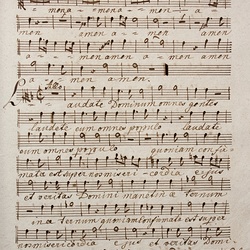 a mon a mon a mon a
mon amon a mon amon
a mon amon a mon amon
a mon amon.
Allo
Laudate Dominum omnes gentes
laudate eum omnes populo laudate
eum omnes populo quoniam confir
mata est super nos miseri cordia ejus
et veritas Domini manet in æternom
in æ ternum quoniam confirmata est super
nos misericordia ejus et veritas Domi